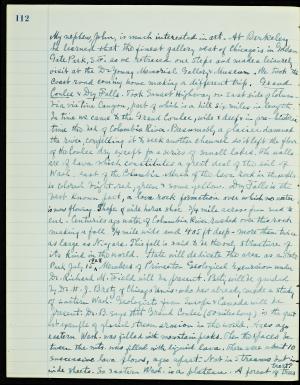 112
My nephew, John, is much interested in art. At Berkeley
he learned that the finest gallery west of Chicago is in Golden
Gate Park, S.F. so we retraced our steps and made a leisurely
visit at the De Young Memorial Gallery Museum. We took the
Coast road coming home making a different trip. Grand
Coulee & Dry Falls. Took Sunset Highway on east side of Colum-
bia via tiny Canyon, part of which is a hill six miles in length.
In time we came to the Grand Coulee, wide & deep in pre-historic
time the bed of Columbia River. Presumably a glacier dammed
the river, compelling it to seek another channel so it left the floor
of the Coulee dry except for a series of small lakes. The walls
are of lava which constitutes a great deal of the soil of
Wash. east of the Columbia. Much of the lava rock in the walls
is colored bright red, green & some yellow. Dry Falls is the
best known fact, a lava rock formation over which no water
is now flowing. Shape of wide horse shoe 3/4 mile across from end to
end. Centuries ago water of Columbia River rushed over this rock
making a fall 3/4 mile wide and 405 ft deep - more than twice
as large as Niagara. This fall is said to be the only structure of
its kind in the world. State will dedicate the area as a State
Park July 10, 1928. Members of Princeton Geological Excursion under
Dr. Richard M. Field will be present. Party will be guided
by Dr. H. J. Bretz of Chicago Univ. who has already made a study
of eastern Wash. Geologists from Europe & Canada will be
present. Dr. B. says that Grand Coulee is the great-
est example of glacial stream erosion in the world. Ages ago
eastern Wash. was filled with mountain peaks. Then the places be-
tween the mts. was filled with liquid lava. There was about 10
successive lava flows, ages apart. Not in streams but in
wide sheets. So eastern Wash. is a plateau. A forest of trees